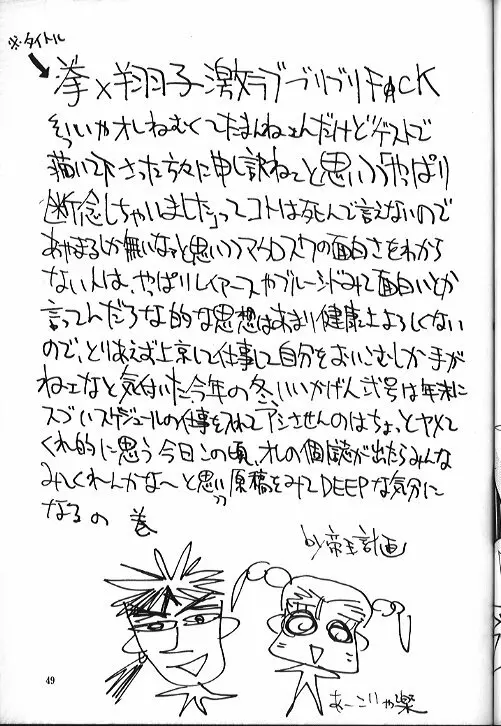 ※タイトル
拳×翔子激ラブブリブリFACK
そういやオレねむくてたまんねェんだけどゲストで
描いて下さった方々に申し訳ねェと思いつつ「やっぱり
断念しちゃいました」ってコトは死んで言えないので
あやまるしか無いなァと思いつつマクロスの面白さをわから
ない人は、やっぱりレイアースやブルーシードみて面白いとか
言ってんだろな的な思想はあまり健康上よろしくない
ので、とりあえず上京して仕事して自分をおいこむしか手が
ねェなと気付いた今年の冬、いいかげん弐号は年末に
スゴいスケジュールの仕事を入れてアシさせんのはちょっとヤメて
くれ的に思う今日この頃、オレの個人誌が出たらみんな
みてくれーんかな〜と思いつつ原稿をみてDEEPな気分に
なるの巻
by帝王計画
あーこりゃ楽
49